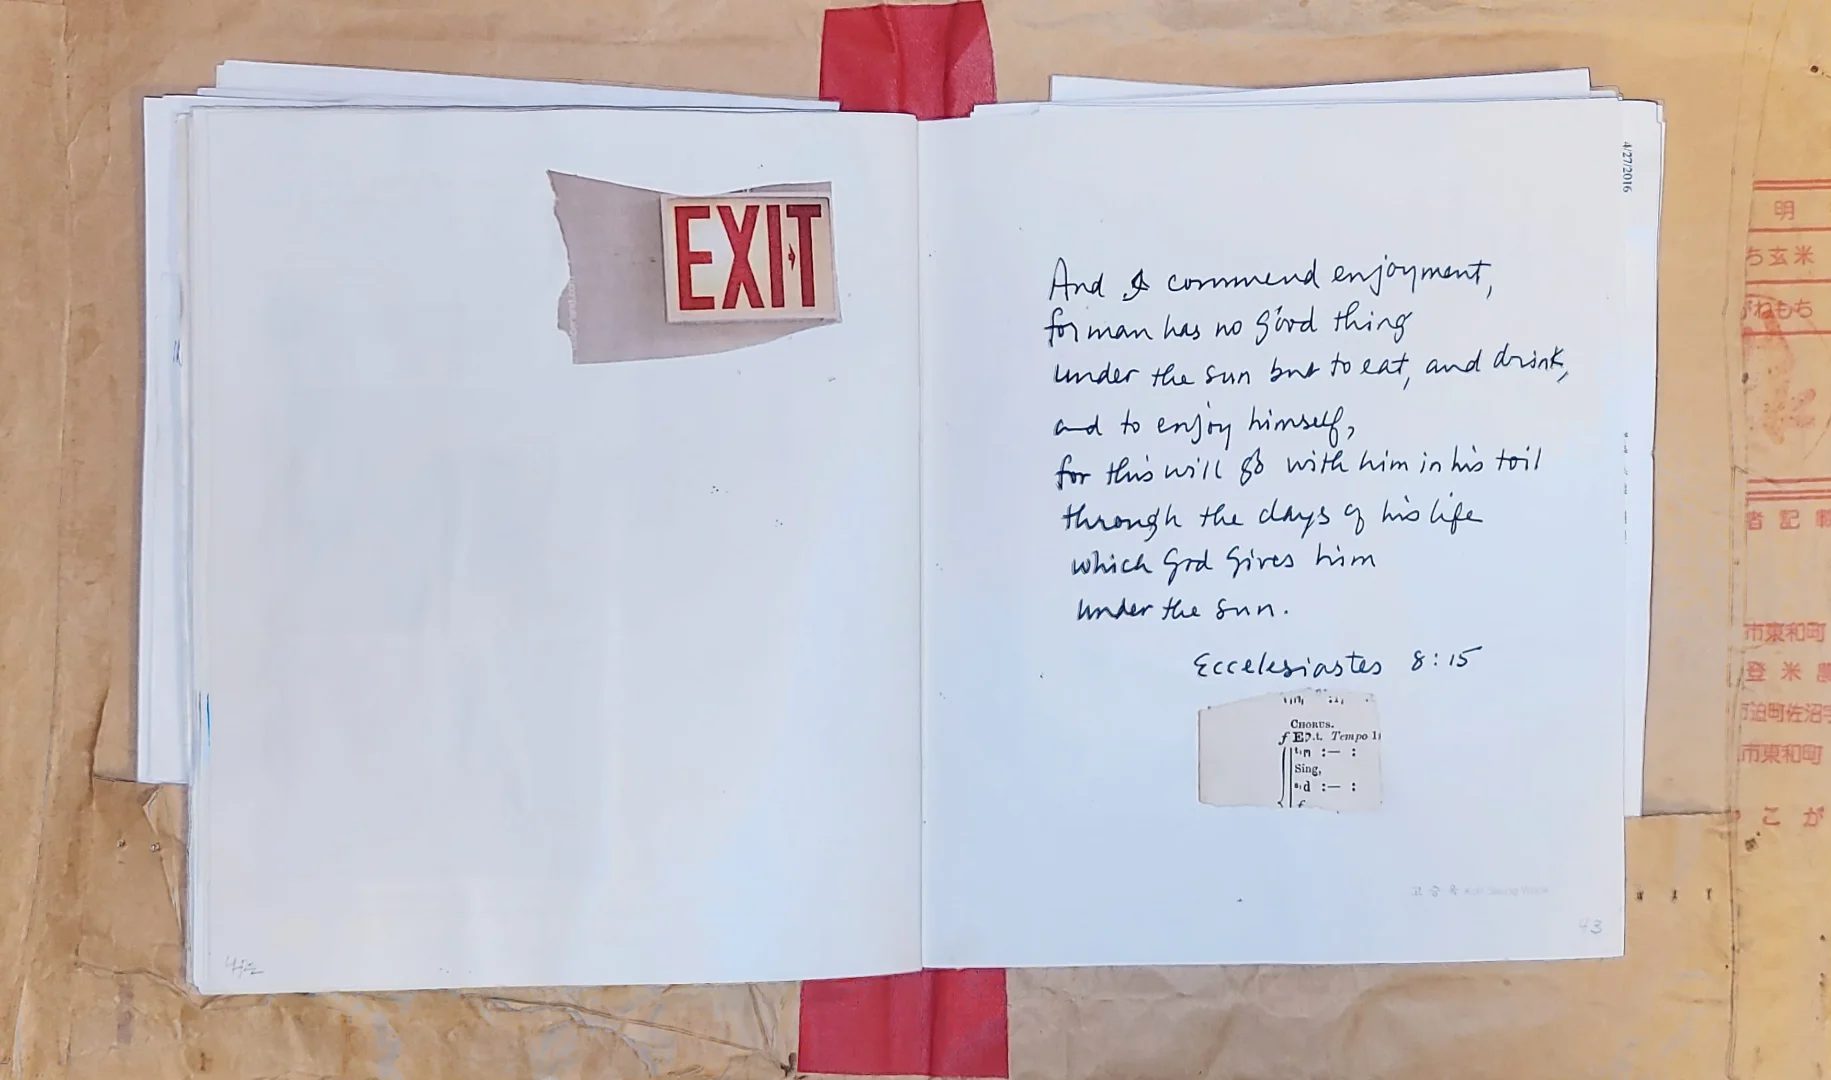 EXIT
4/27/2016
And I commend enjoyment,
for man has no good thing
under the sun but to eat, and drink,
and to enjoy himself,
for this will go with him in his toil
through the days of his life
which God gives him
under the sun.
Eccelesiastes 8:15
CHORUS.
f E♭.t. Tempo
Sing,
d :— :
f
고 승 욱 Koh Seung Wook
43
明
ち玄米
がねもち
者 記 載
市東和町
登 米 農
市迫町佐沼字
市東和町
こ が